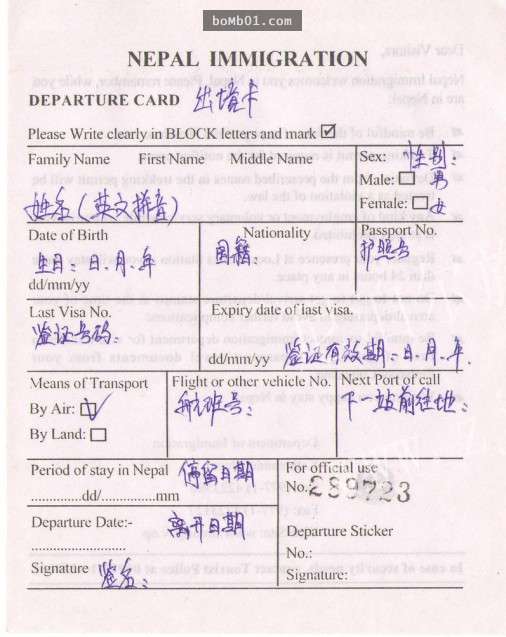 boMb01.com
NEPAL IMMIGRATION
DEPARTURE CARD 出境卡
Please Write clearly in BLOCK letters and mark ☑
Family Name First Name Middle Name
姓名(英文拼音)
Sex: 性别:
Male: □ 男
Female: □ 女
Date of Birth
生日: 日.月.年
dd/mm/yy
Nationality
国籍:
Passport No.
护照号
Last Visa No.
签证号码:
Expiry date of last visa.
dd/mm/yy 签证有效期:日.月.年.
Means of Transport
By Air: ☑
By Land: □
Flight or other vehicle No.
航班号:
Next Port of call
下一站前往地:
Period of stay in Nepal 停留日期
..............dd/..............mm
For official use
No. 289723
Departure Date:- 离开日期
.........................
Departure Sticker
No.:
Signature 签名:
Signature: